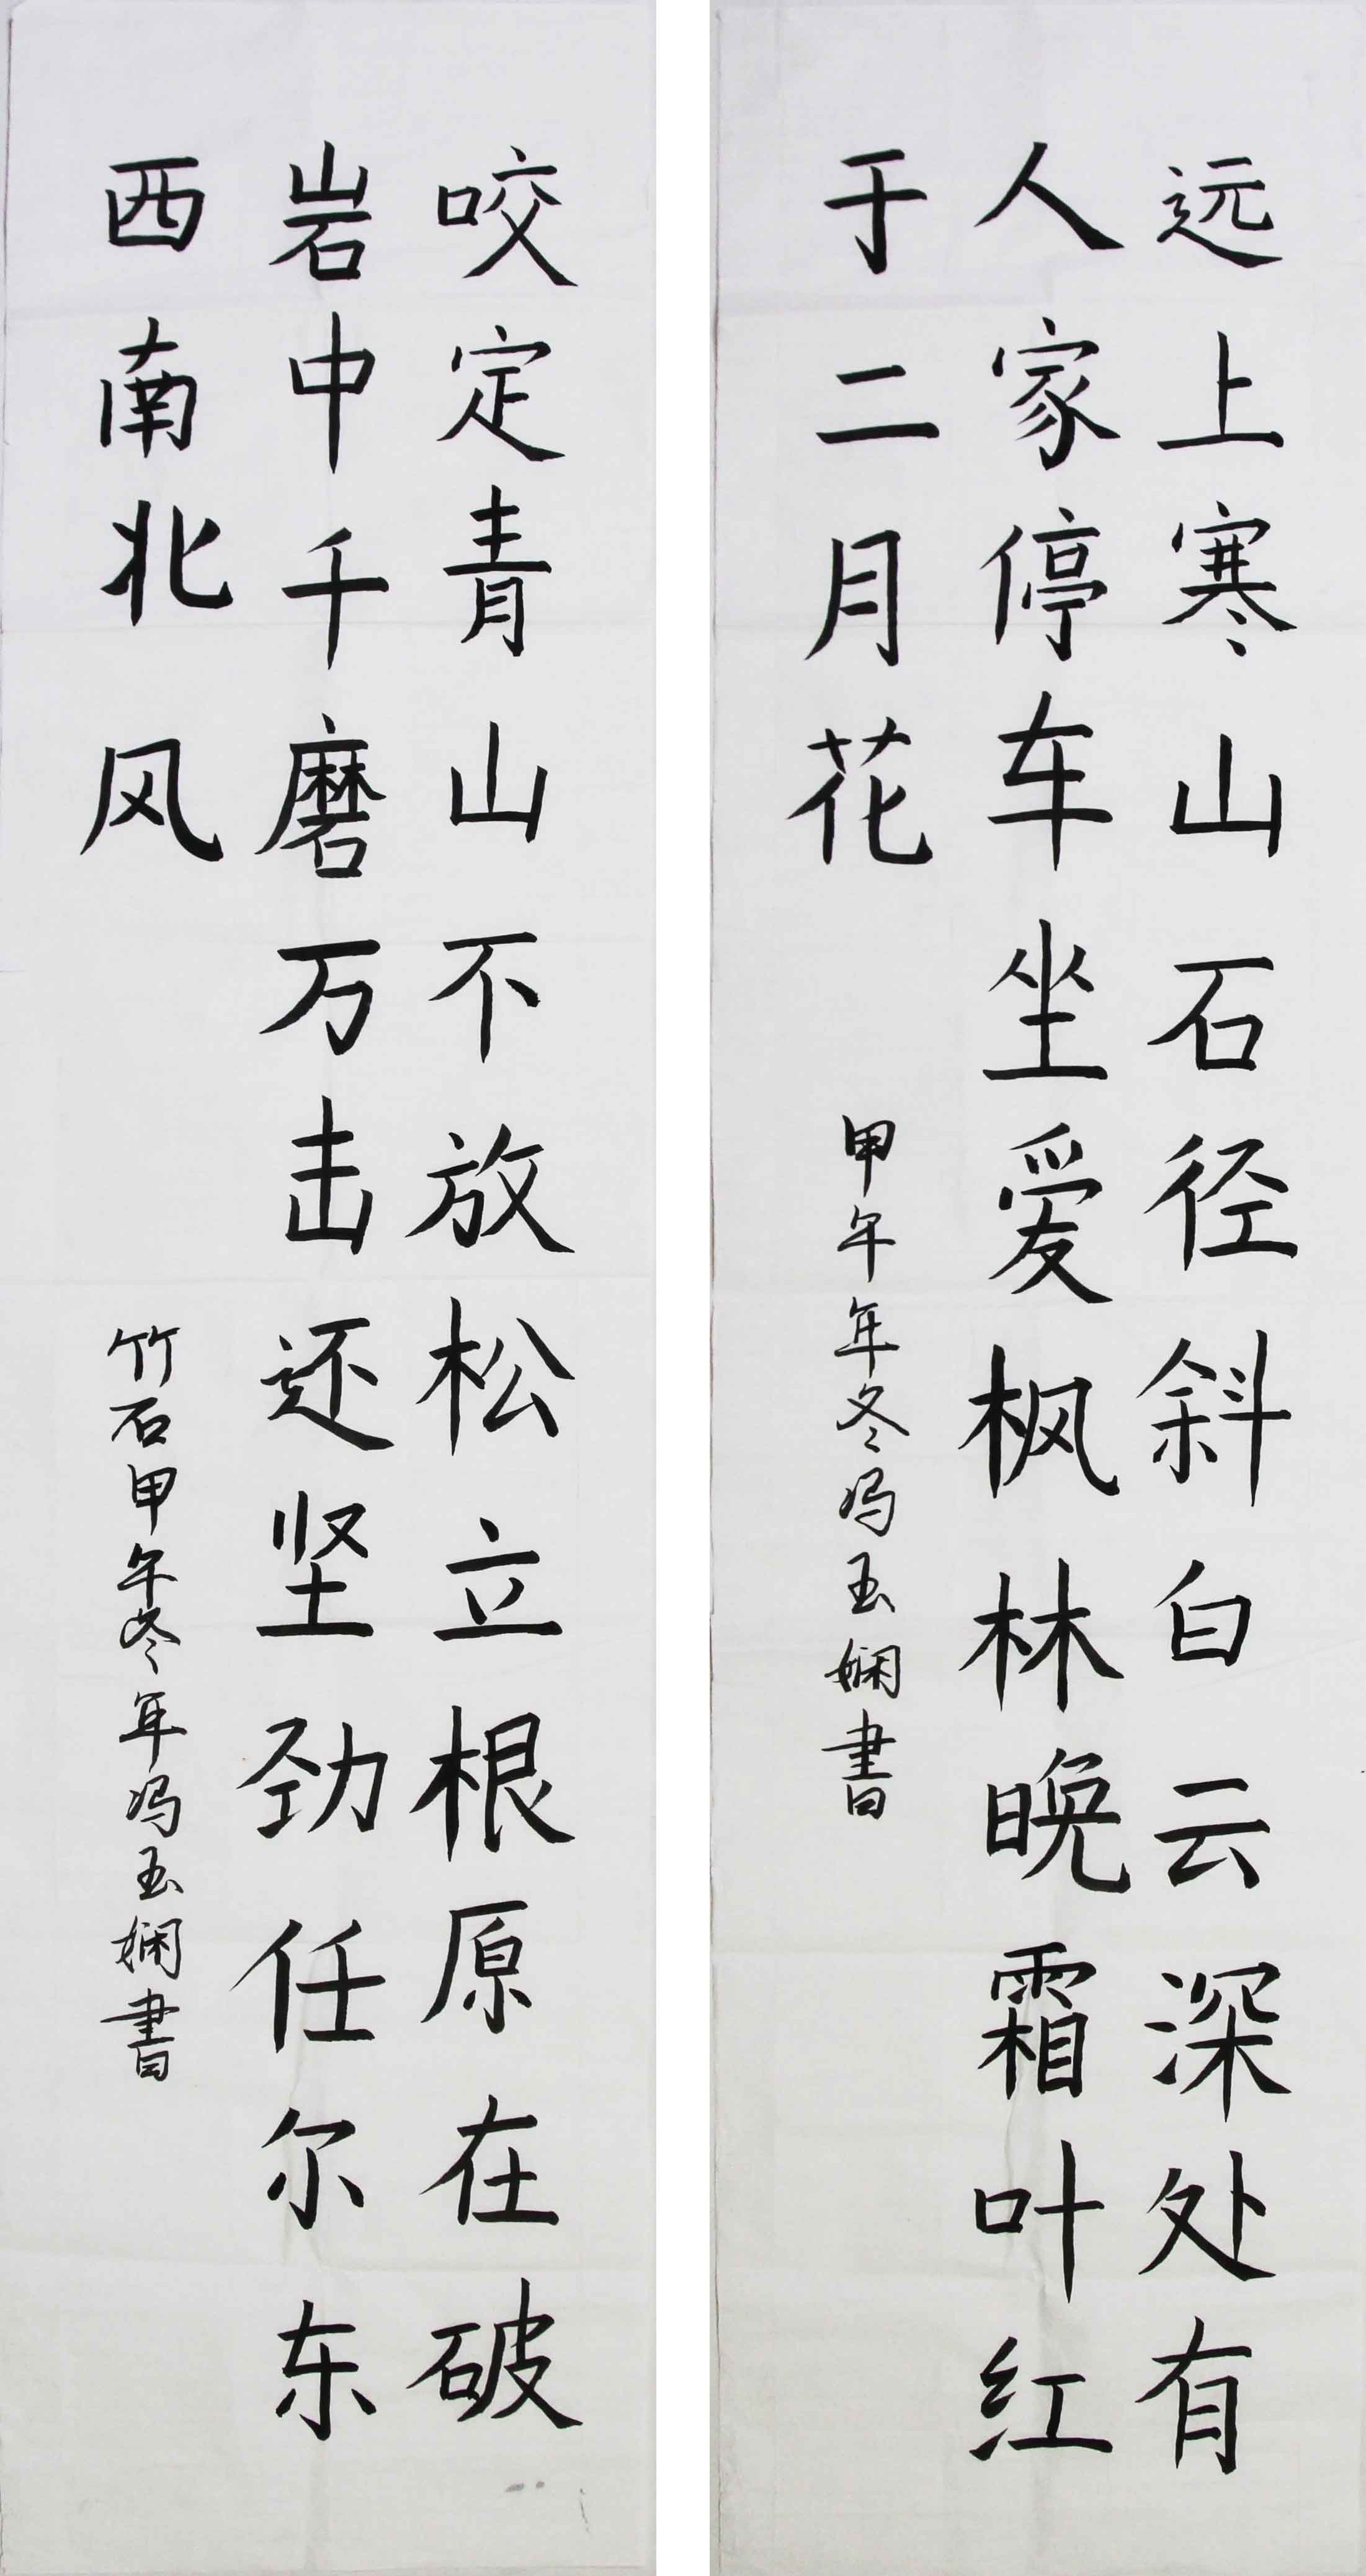 远上寒山石径斜白云深处有
人家停车坐爱枫林晚霜叶红
于二月花
甲午年冬冯玉娴書
咬定青山不放松立根原在破
岩中千磨万击还坚劲任尔东
西南北风
竹石甲午冬年冯玉娴書